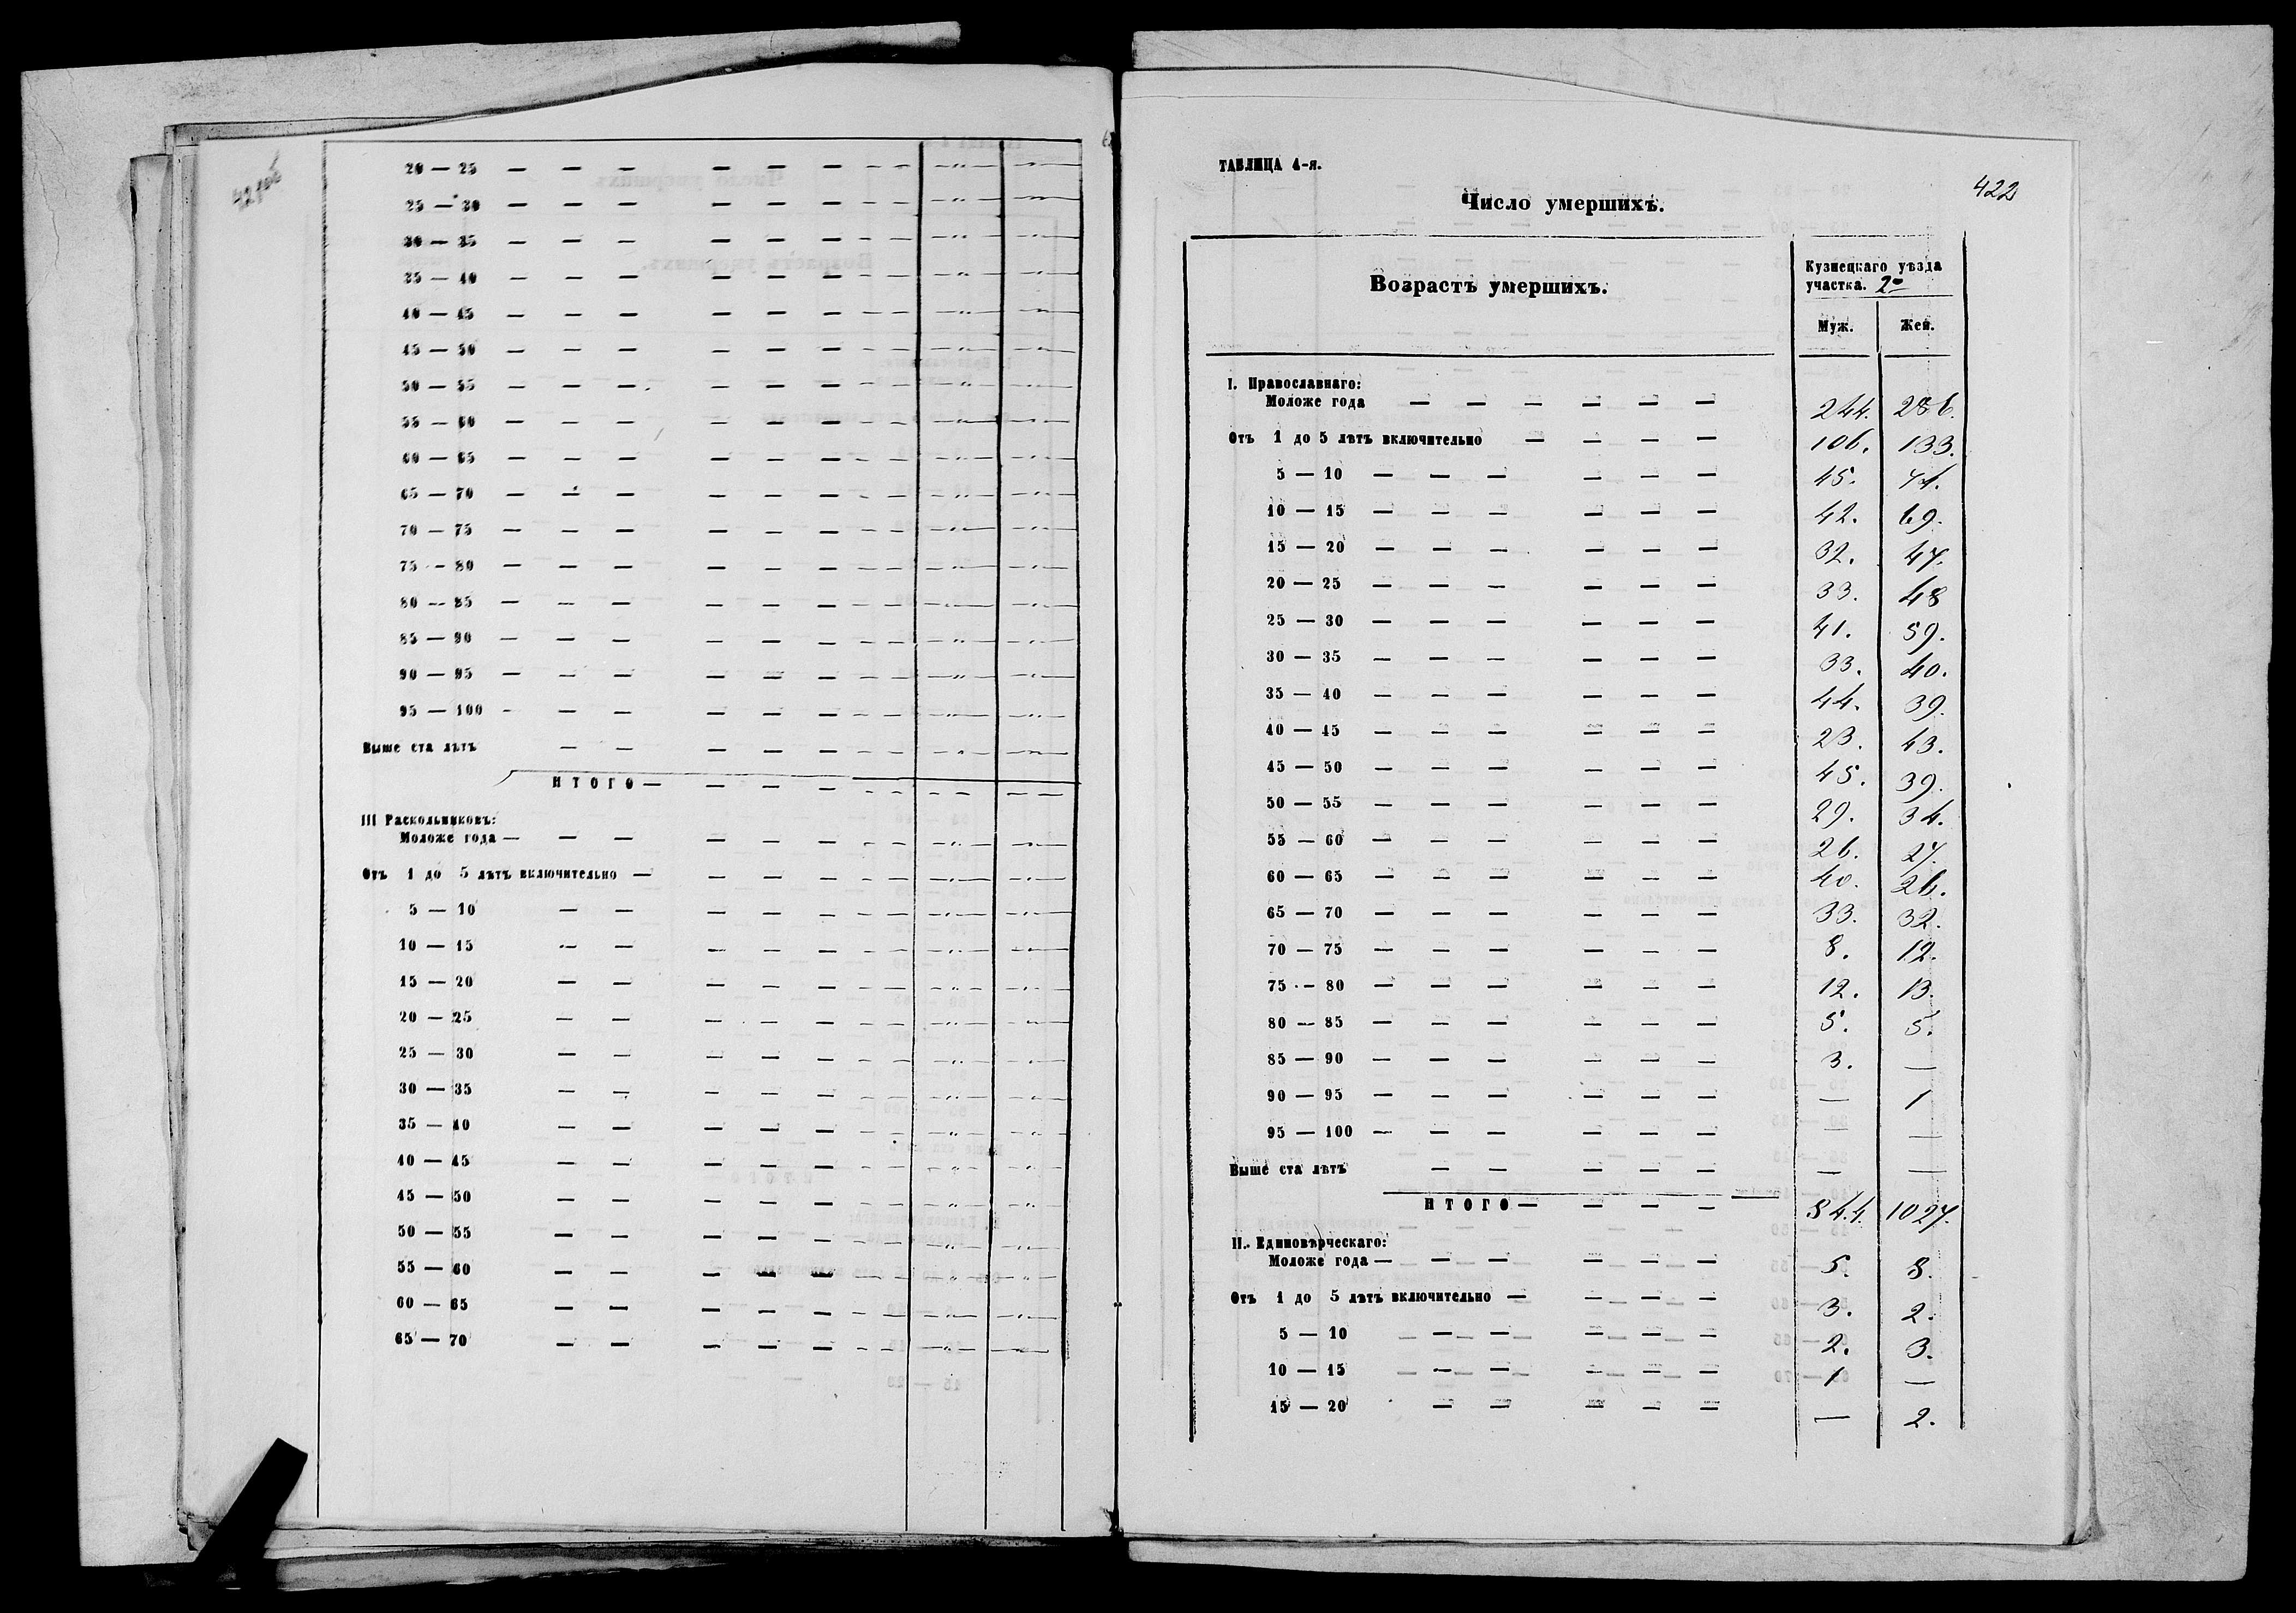 421об
20 — 25 — — — — — — — — —„— —„—
25 — 30 — — — — — — — — —„— —„—
30 — 35 — — — — — — — — —„— —„—
35 — 40 — — — — — — — — —„— —„—
40 — 45 — — — — — — — — —„— —„—
45 — 50 — — — — — — — — —„— —„—
50 — 55 — — — — — — — — —„— —„—
55 — 60 — — — — — — — — —„— —„—
60 — 65 — — — — — — — — —„— —„—
65 — 70 — — — — — — — — —„— —„—
70 — 75 — — — — — — — — —„— —„—
75 — 80 — — — — — — — — —„— —„—
80 — 85 — — — — — — — — —„— —„—
85 — 90 — — — — — — — — —„— —„—
90 — 95 — — — — — — — — —„— —„—
95 — 100 — — — — — — — — —„— —„—
Выше ста лѣтъ — — — — — — — —„— —„—
ИТОГО — — — — — — — — — —
III Раскольниковъ:
Моложе года — — — — — — — — —„— —„—
Отъ 1 до 5 лѣтъ включительно — — — — — — —„— —„—
5 — 10 — — — — — — — —„— —„—
10 — 15 — — — — — — — —„— —„—
15 — 20 — — — — — — — —„— —„—
20 — 25 — — — — — — — —„— —„—
25 — 30 — — — — — — — —„— —„—
30 — 35 — — — — — — — —„— —„—
35 — 40 — — — — — — — —„— —„—
40 — 45 — — — — — — — —„— —„—
45 — 50 — — — — — — — —„— —„—
50 — 55 — — — — — — — —„— —„—
55 — 60 — — — — — — — —„— —„—
60 — 65 — — — — — — — —„— —„—
65 — 70 — — — — — — — —„— —„—
ТАБЛИЦА 4-я.
422
Число умершихъ.
Возрастъ умершихъ.
Кузнецкаго уѣзда
участка. 2го
Муж. Жен.
I. Православнаго:
Моложе года — — — — — — 244. 286.
Отъ 1 до 5 лѣтъ включительно — — — — 106. 133.
5 — 10 — — — — — — 45. 74.
10 — 15 — — — — — — 42. 69.
15 — 20 — — — — — — 32. 47.
20 — 25 — — — — — — 33. 48
25 — 30 — — — — — — 41. 59.
30 — 35 — — — — — — 33. 40.
35 — 40 — — — — — — 44. 39.
40 — 45 — — — — — — 23. 43.
45 — 50 — — — — — — 45. 39.
50 — 55 — — — — — — 29. 34.
55 — 60 — — — — — — 26. 27.
60 — 65 — — — — — — 40. 26.
65 — 70 — — — — — — 33. 32.
70 — 75 — — — — — — 8. 12.
75 — 80 — — — — — — 12. 13.
80 — 85 — — — — — — 5. 5.
85 — 90 — — — — — — 3. —
90 — 95 — — — — — — — 1
95 — 100 — — — — — — — —
Выше ста лѣтъ — — — — — — —
ИТОГО — — — — 844. 1027.
II. Единовѣрческаго:
Моложе года — — — — — — 5. 8.
Отъ 1 до 5 лѣтъ включительно — — — — 3. 2.
5 — 10 — — — — — — 2. 3.
10 — 15 — — — — — 1 —
15 — 20 — — — — — — 2.